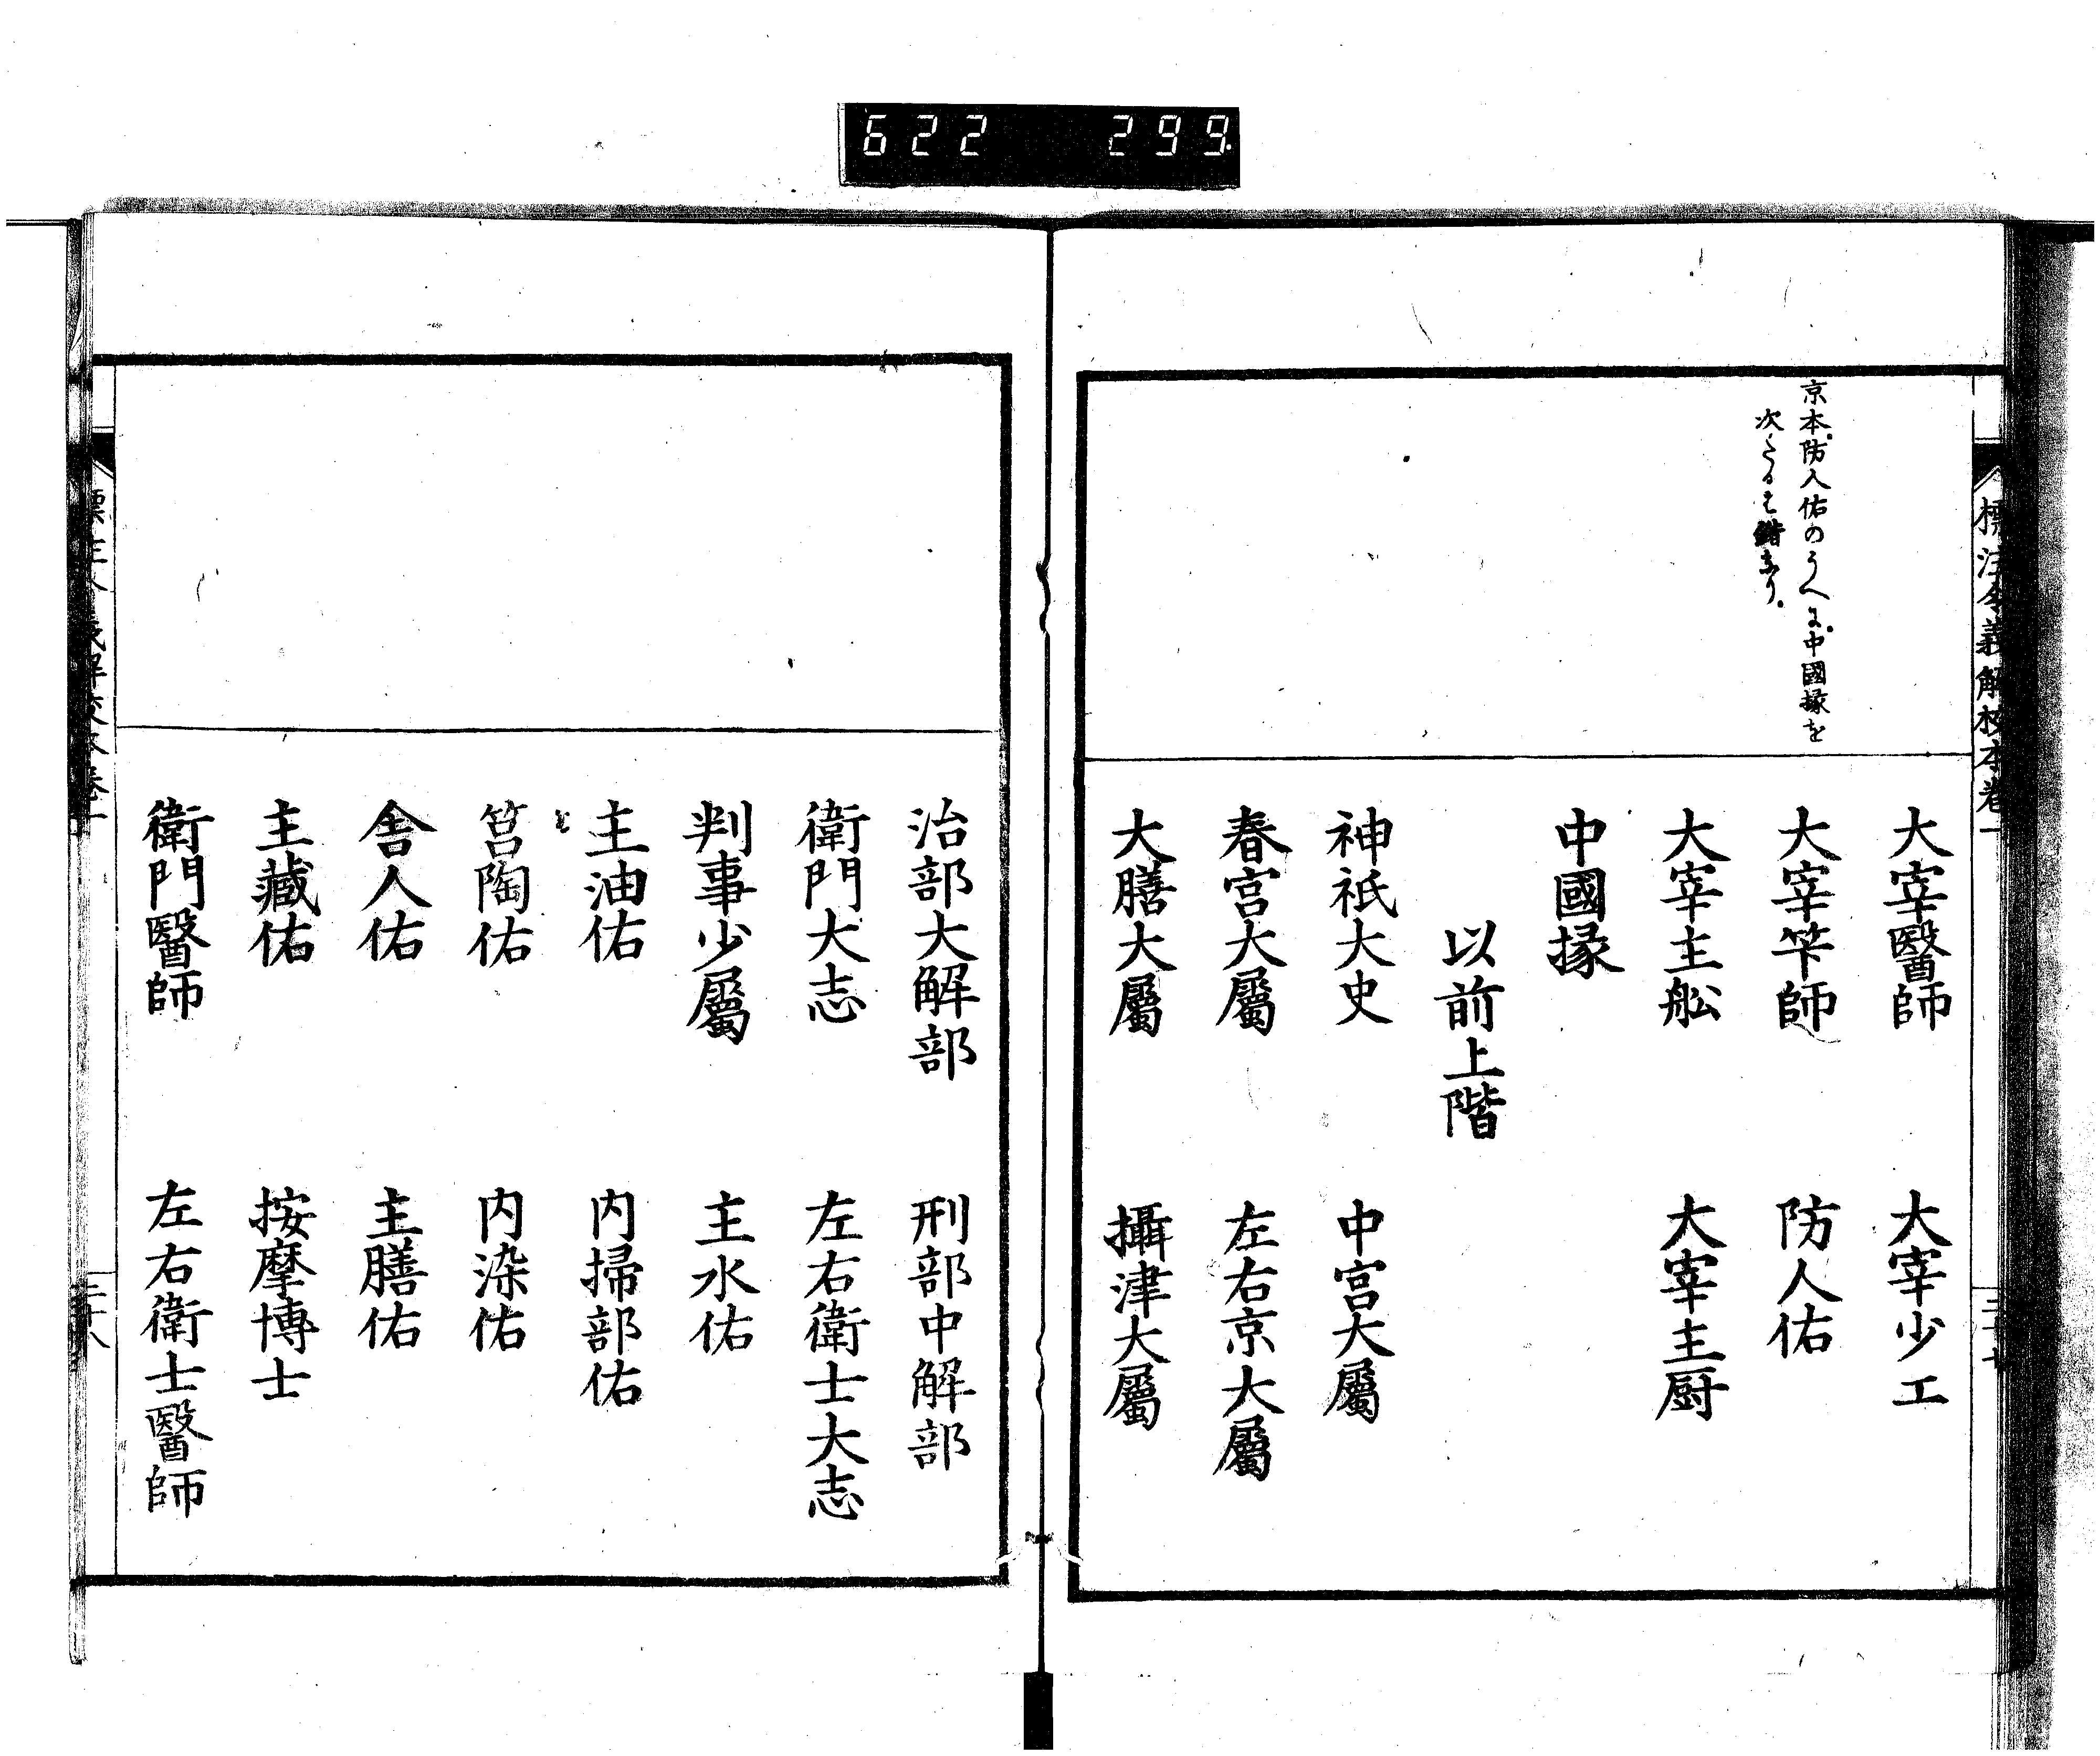 622 299
標注令義解校本卷一
京本防人佑のうへに中國掾を
次たるは錯なり
大宰醫師 大宰少工
大宰笇師 防人佑
大宰主舩 大宰主厨
中國掾
以前上階
神祇大史 中宮大屬
春宮大屬 左右京大屬
大膳大屬 攝津大屬
治部大解部 刑部中解部
衛門大志 左右衛士大志
判事少屬 主水佑
主油佑 内掃部佑
筥陶佑 内染佑
舎人佑 主膳佑
主藏佑 按摩博士
衛門醫師 左右衛士醫師